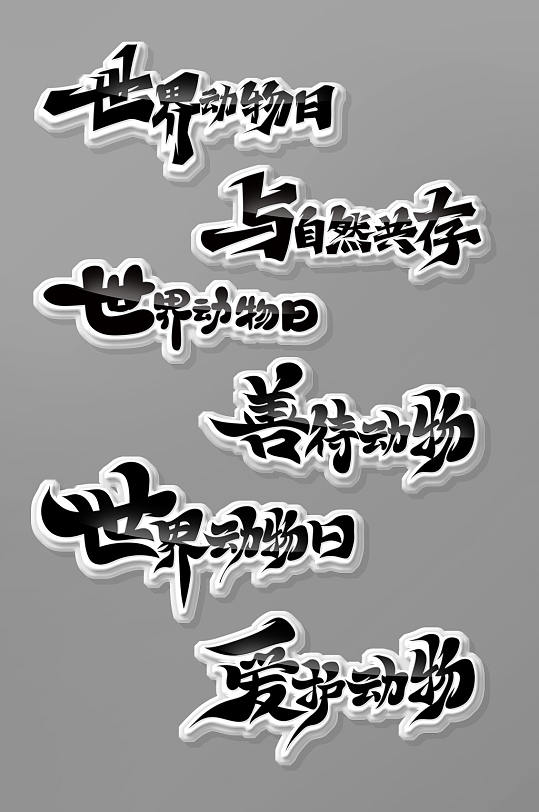 世界动物日
与自然共存
世界动物日
善待动物
世界动物日
爱护动物